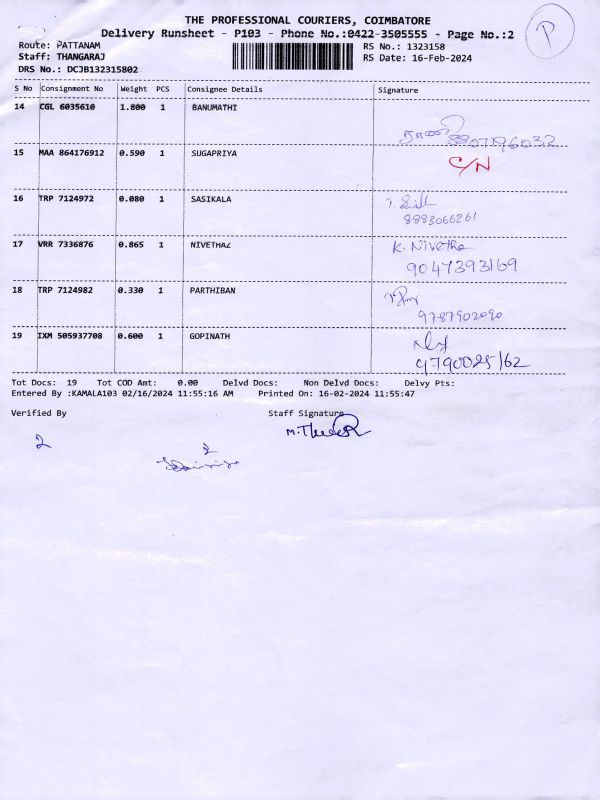 THE PROFESSIONAL COURIERS, COIMBATORE
Delivery Runsheet - P103 - Phone No.:0422-3505555 - Page No.:2
P
Route: PATTANAM RS No.: 1323158
Staff: THANGARAJ RS Date: 16-Feb-2024
DRS No.: DCJB132315802
S No Consignment No Weight PCS Consignee Details Signature
14 CGL 6035610 1.800 1 BANUMATHI
15 MAA 864176912 0.590 1 SUGAPRIYA C/N
16 TRP 7124972 0.080 1 SASIKALA
8883066261
17 VRR 7336876 0.865 1 NIVETHAZ K. Nivetha
9047393169
18 TRP 7124982 0.330 1 PARTHIBAN
9787902090
19 IXM 505937708 0.600 1 GOPINATH
9790025162
Tot Docs: 19 Tot COD Amt: 0.00 Delvd Docs: Non Delvd Docs: Delvy Pts:
Entered By :KAMALA103 02/16/2024 11:55:16 AM Printed On: 16-02-2024 11:55:47
Verified By Staff Signature
2
2